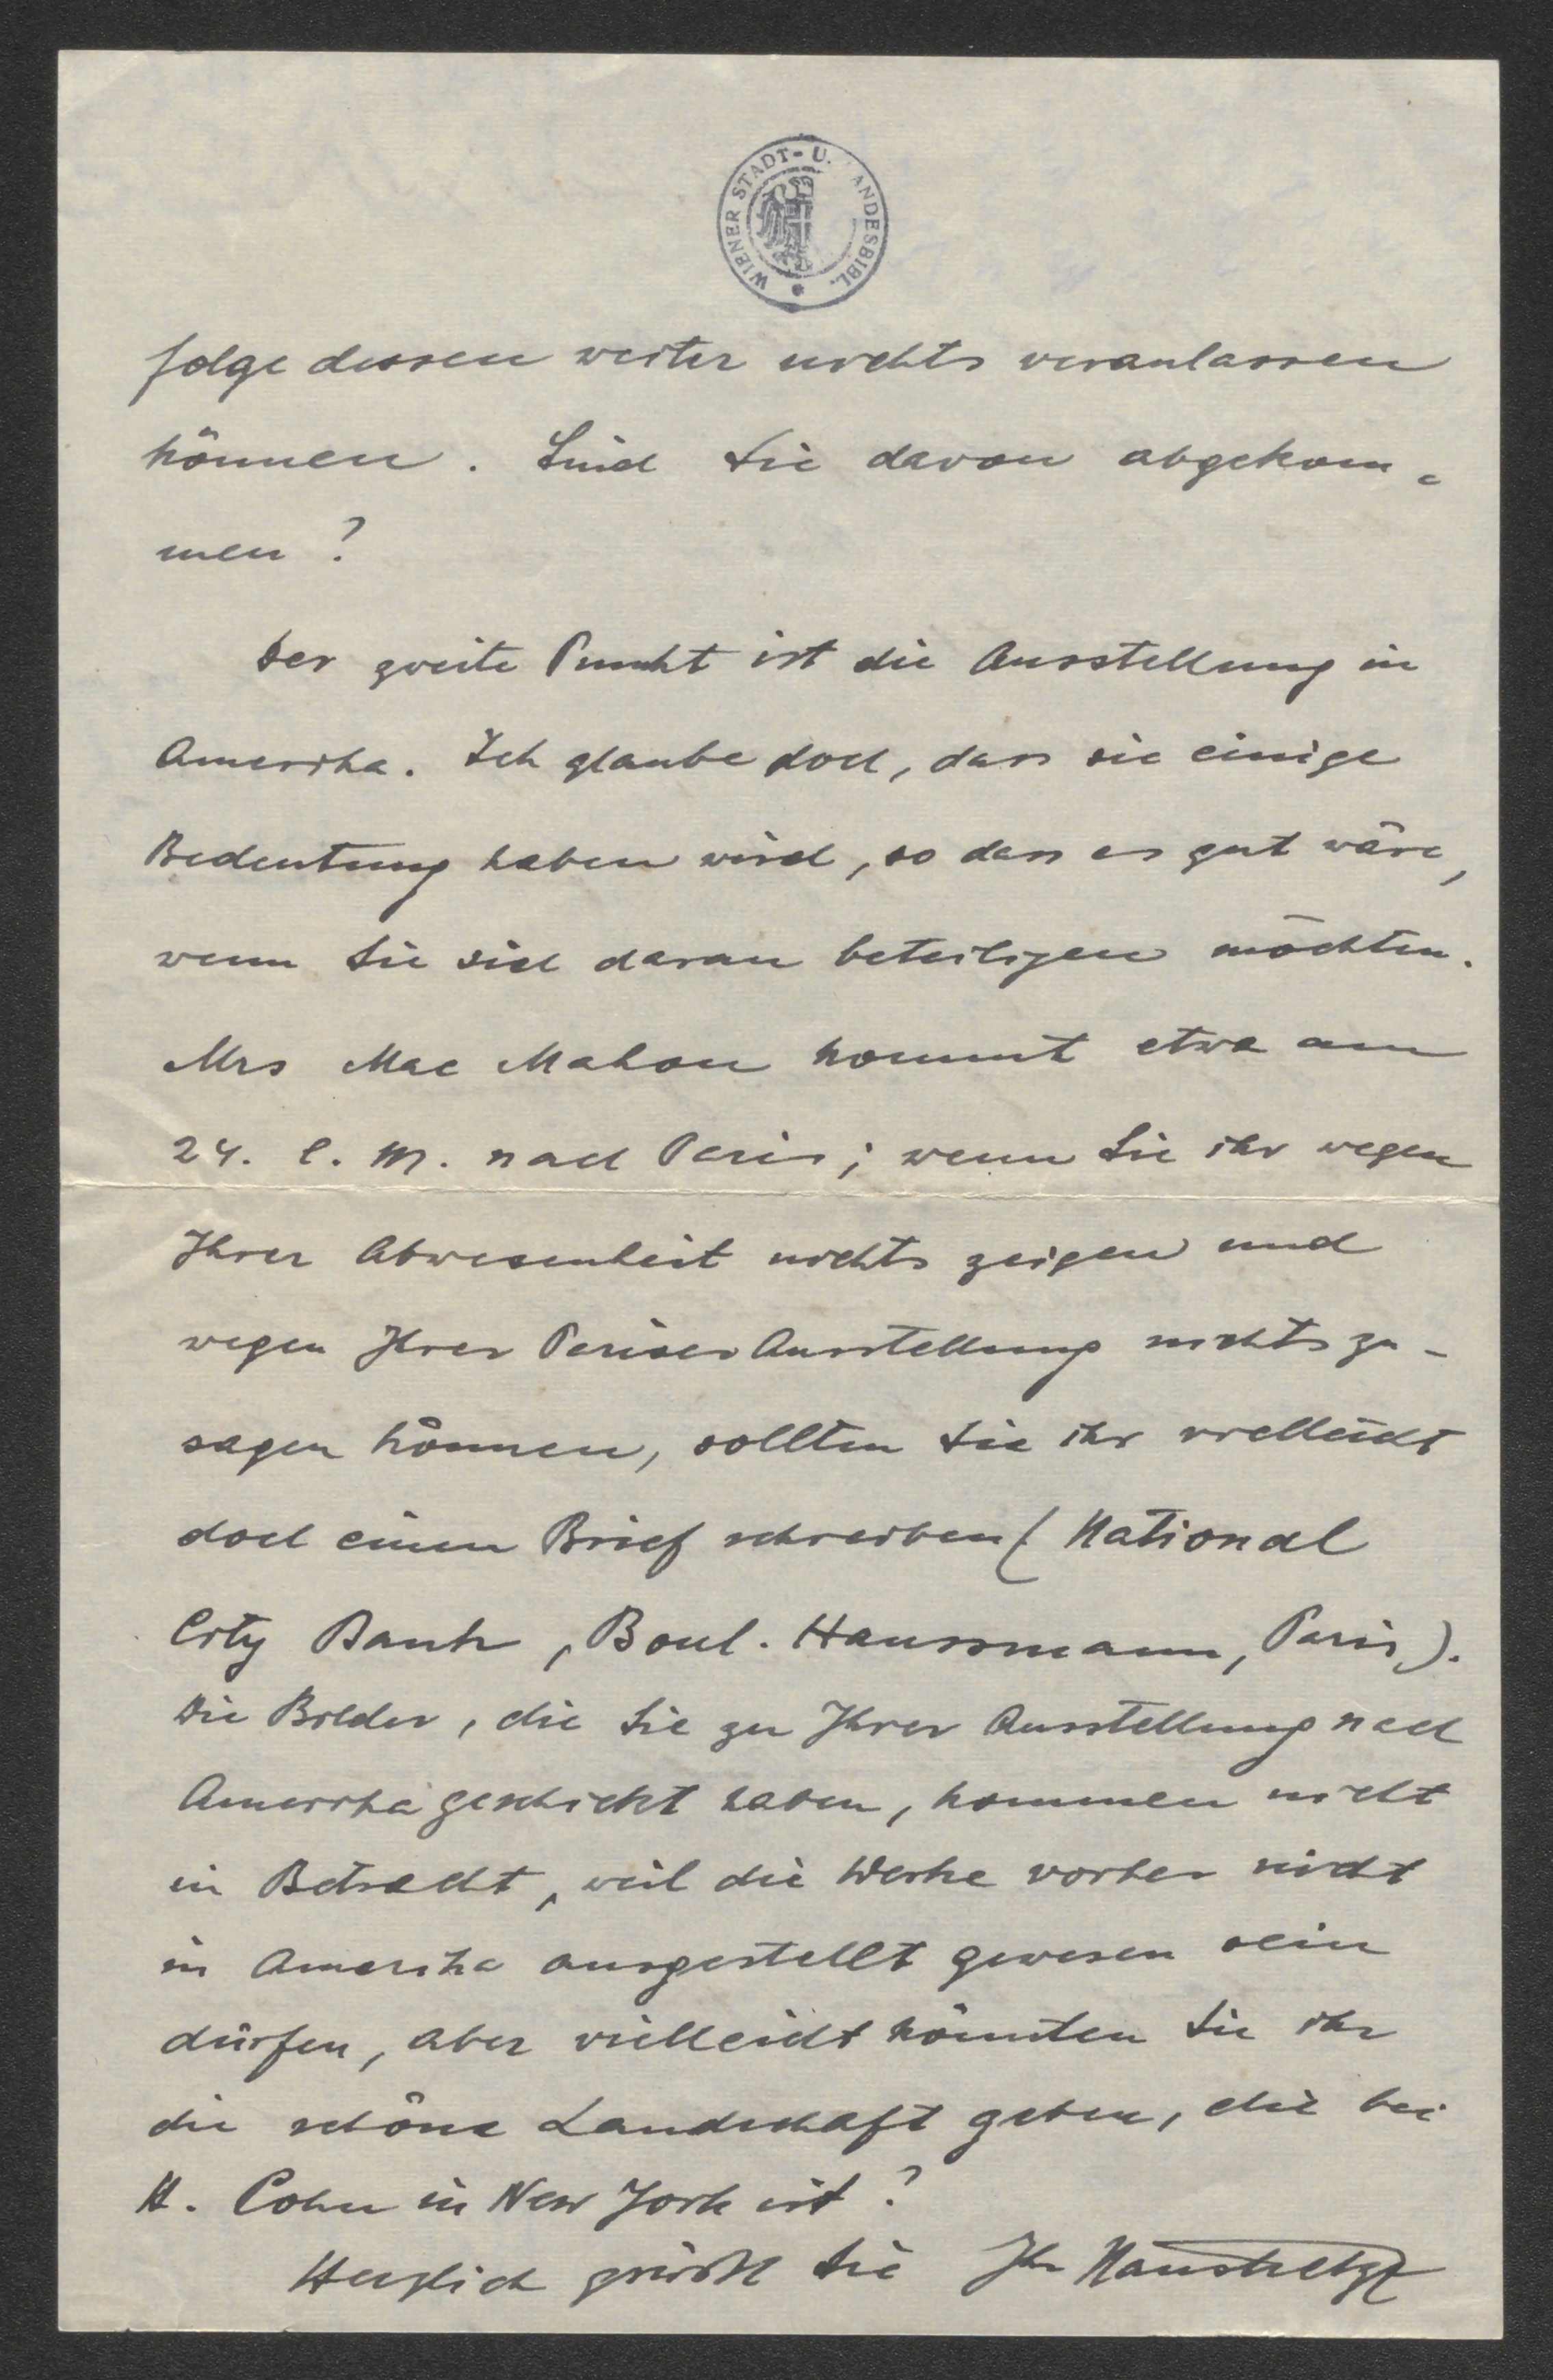 WIENER STADT- U. LANDESBIBL.
folge dessen weiter nichts veranlassen
können. Sind Sie davon abgekom-
men?
Der zweite Punkt ist die Ausstellung in
Amerika. Ich glaube doch, dass sie einige
Bedeutung haben wird, so dass es gut wäre,
wenn Sie sich daran beteiligen möchten.
Mrs Mac Mahon kommt etwa am
24. l. M. nach Paris; wenn Sie ihr wegen
Ihrer Abwesenheit nichts zeigen und
wegen Ihrer Pariser Ausstellung nichts zu-
sagen können, sollten Sie ihr vielleicht
doch einen Brief schreiben (National
City Bank, Boul. Haussmann, Paris).
Die Bilder, die Sie zu Ihrer Ausstellung nach
Amerika geschickt haben, kommen nicht
in Betracht, weil die Werke vorher nicht
in Amerika ausgestellt gewesen sein
dürfen, aber vielleicht könnten Sie ihr
die schöne Landschaft geben, die bei
H. Cohn in New York ist?
Herzlich grüsst Sie Ihr